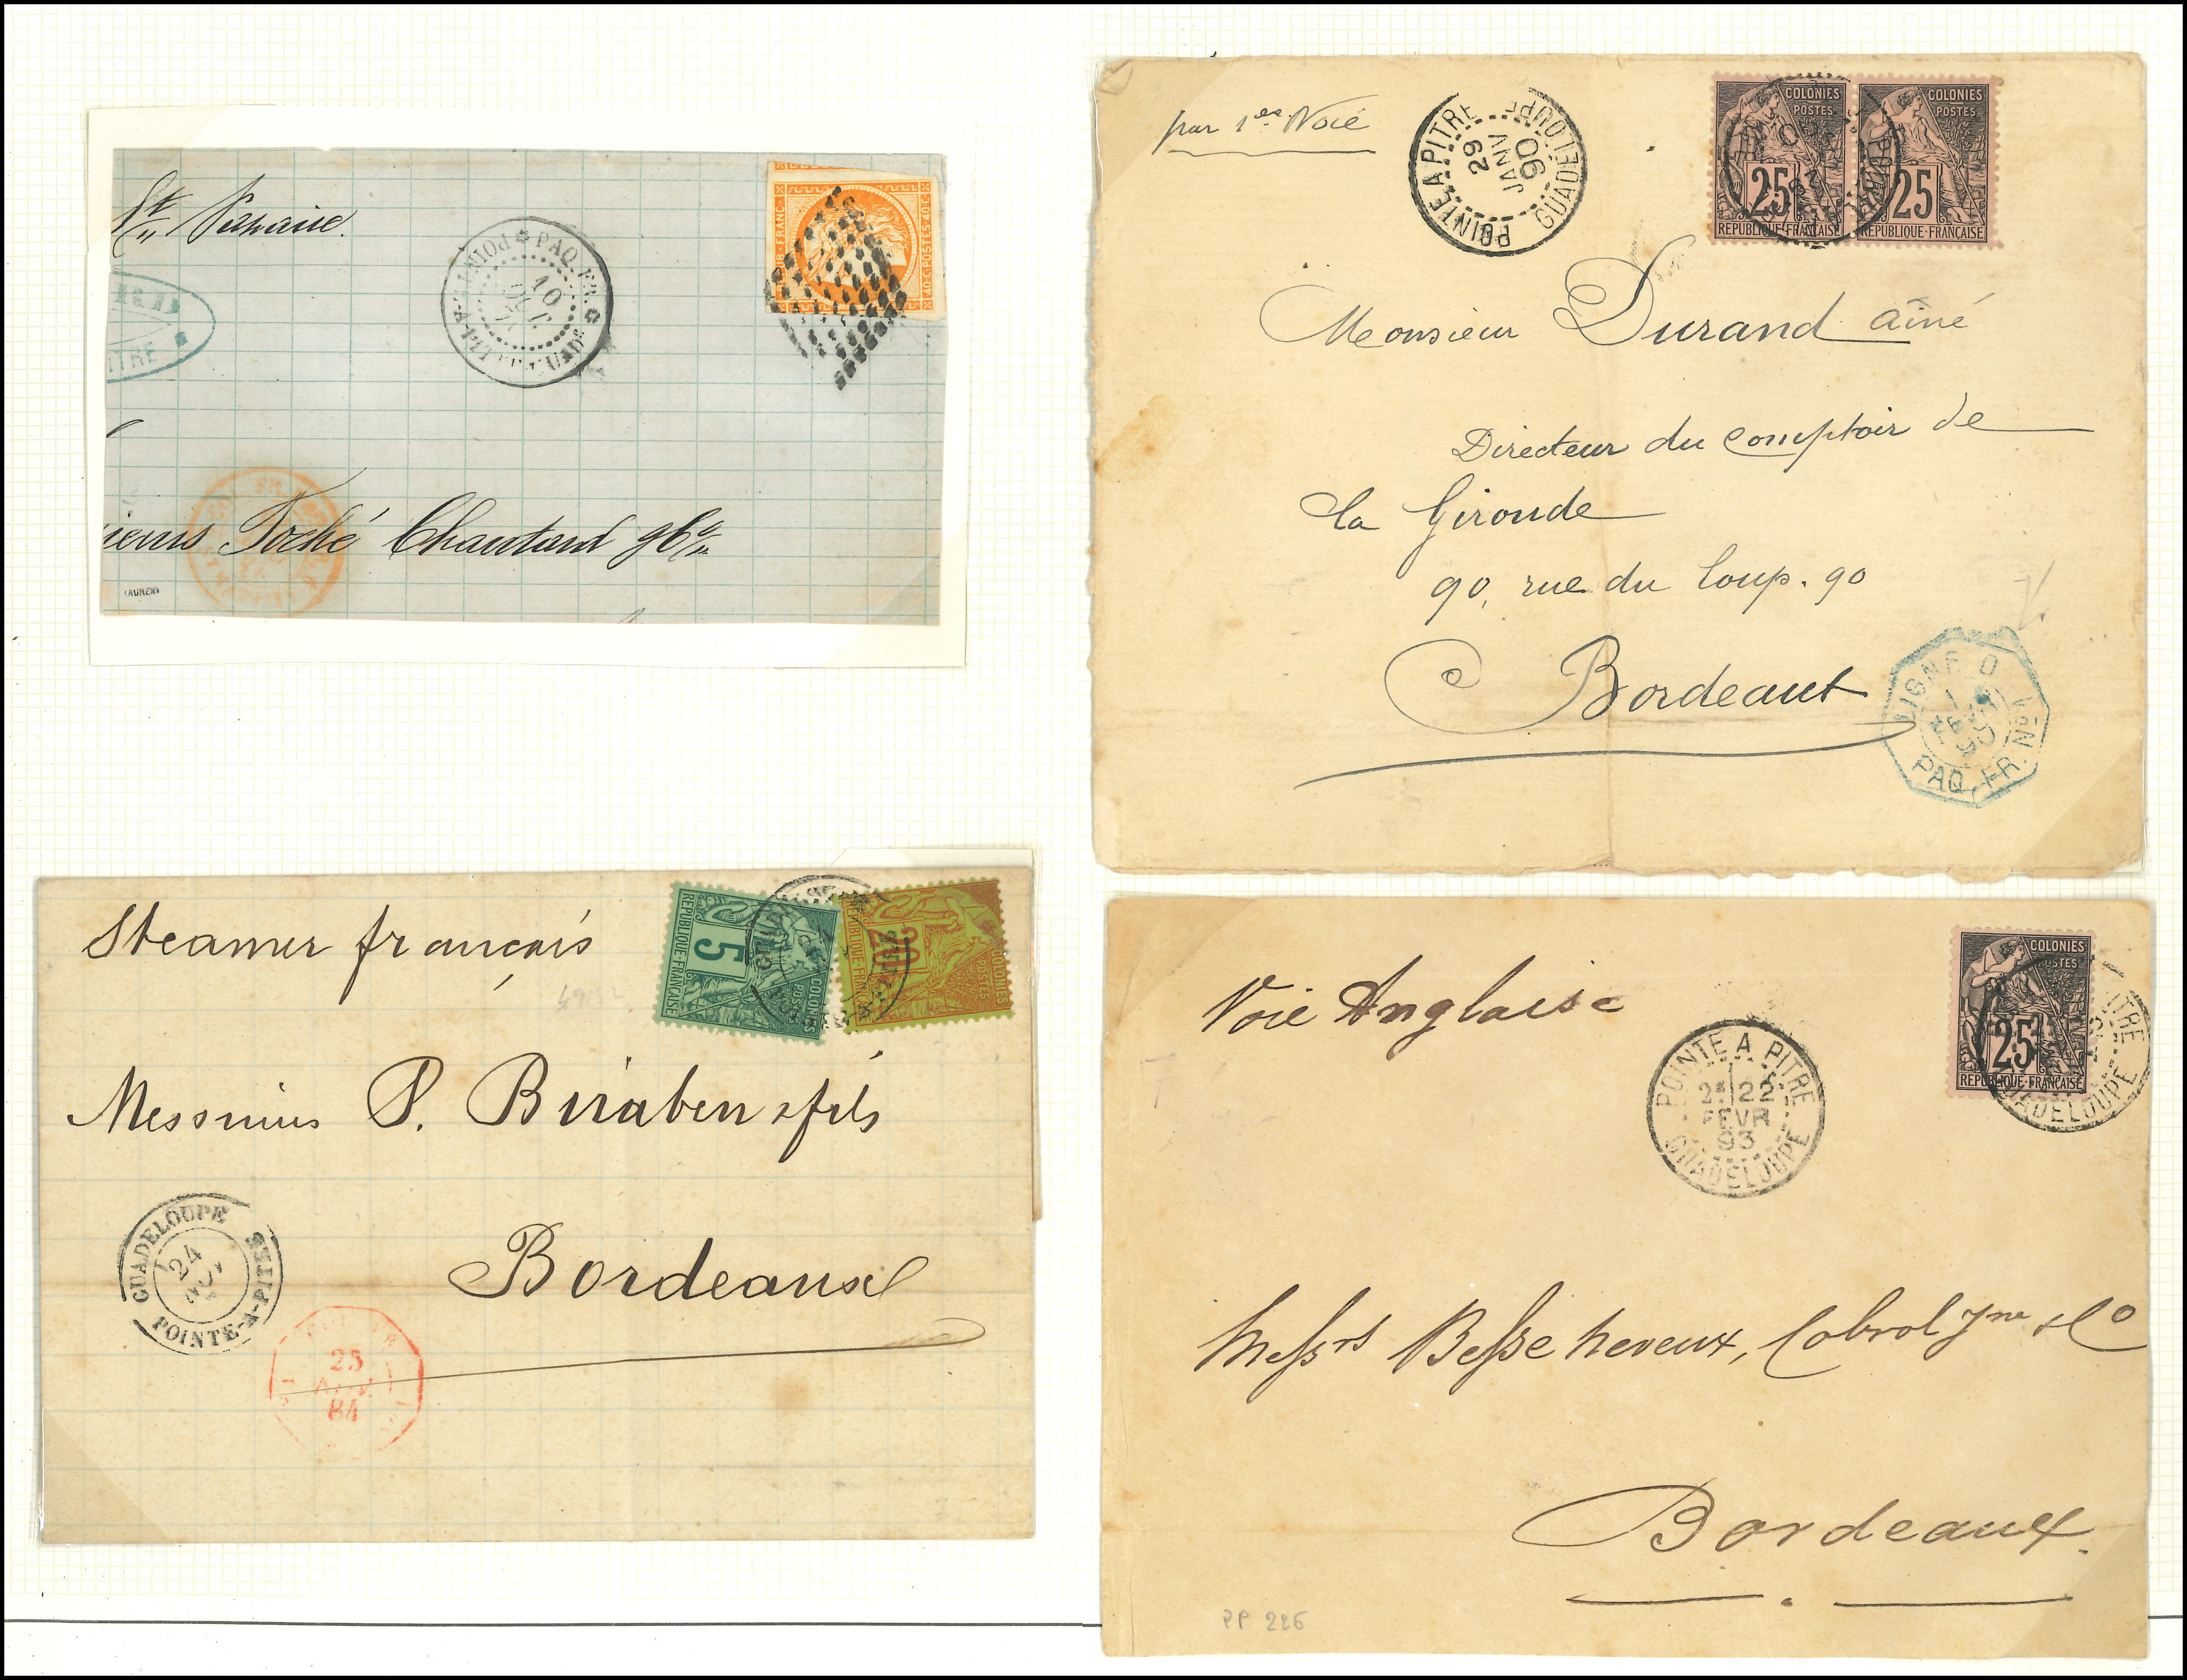 PAQ. FR.
POINTE-A-PITRE
10
40 C. POSTES 40 C.
Toché Chantard & Cie
par 1ere Voie
POINTE A PITRE
29
JANV
90
GUADELOUPE
COLONIES
POSTES
25
REPUBLIQUE-FRANÇAISE
COLONIES
POSTES
25
REPUBLIQUE-FRANÇAISE
Monsieur Durand ainé
Directeur du Comptoir de
la Gironde
90, rue du Loup. 90
Bordeaux
LIGNE D
1
FEVR
90
PAQ. FR. N°1
Steamer français
REPUBLIQUE-FRANÇAISE
5
COLONIES
POSTES
20
COLONIES
POSTES
Messieurs P. Biraben & fils
Bordeaux
GUADELOUPE
24
NOV
POINTE-A-PITRE
25
NOV.
84
Voie Anglaise
POINTE A PITRE
2E 22
FEVR
93
GUADELOUPE
COLONIES
POSTES
25
REPUBLIQUE-FRANÇAISE
Messrs Besse neveux, Cabrol Jne & Co
Bordeaux
PP 226